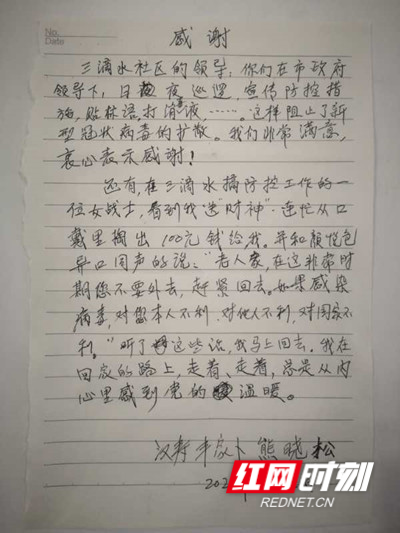 No.
Date
感谢
三滴水社区的领导：你们在市政府
领导下，日夜巡逻，宣传防控措
施，贴标语，打消毒液，……。这样阻止了新
型冠状病毒的扩散。我们非常满意，
衷心表示感谢！
还有在三滴水搞防控工作的一
位女战士，看到我"送财神"。连忙从口
戴里掏出100元钱给我。并和颜悦色
异口同声的说："老人家，在这非常时
期您不要外去，赶紧回去。如果感染
病毒，对您本人不利，对他人不利，对国家不
利。"听了这些话，我马上回去。我在
回家的路上，走着、走着，总是从内
心里感到党的温暖。
汉寿 熊晓松
202
红网时刻
REDNET.CN